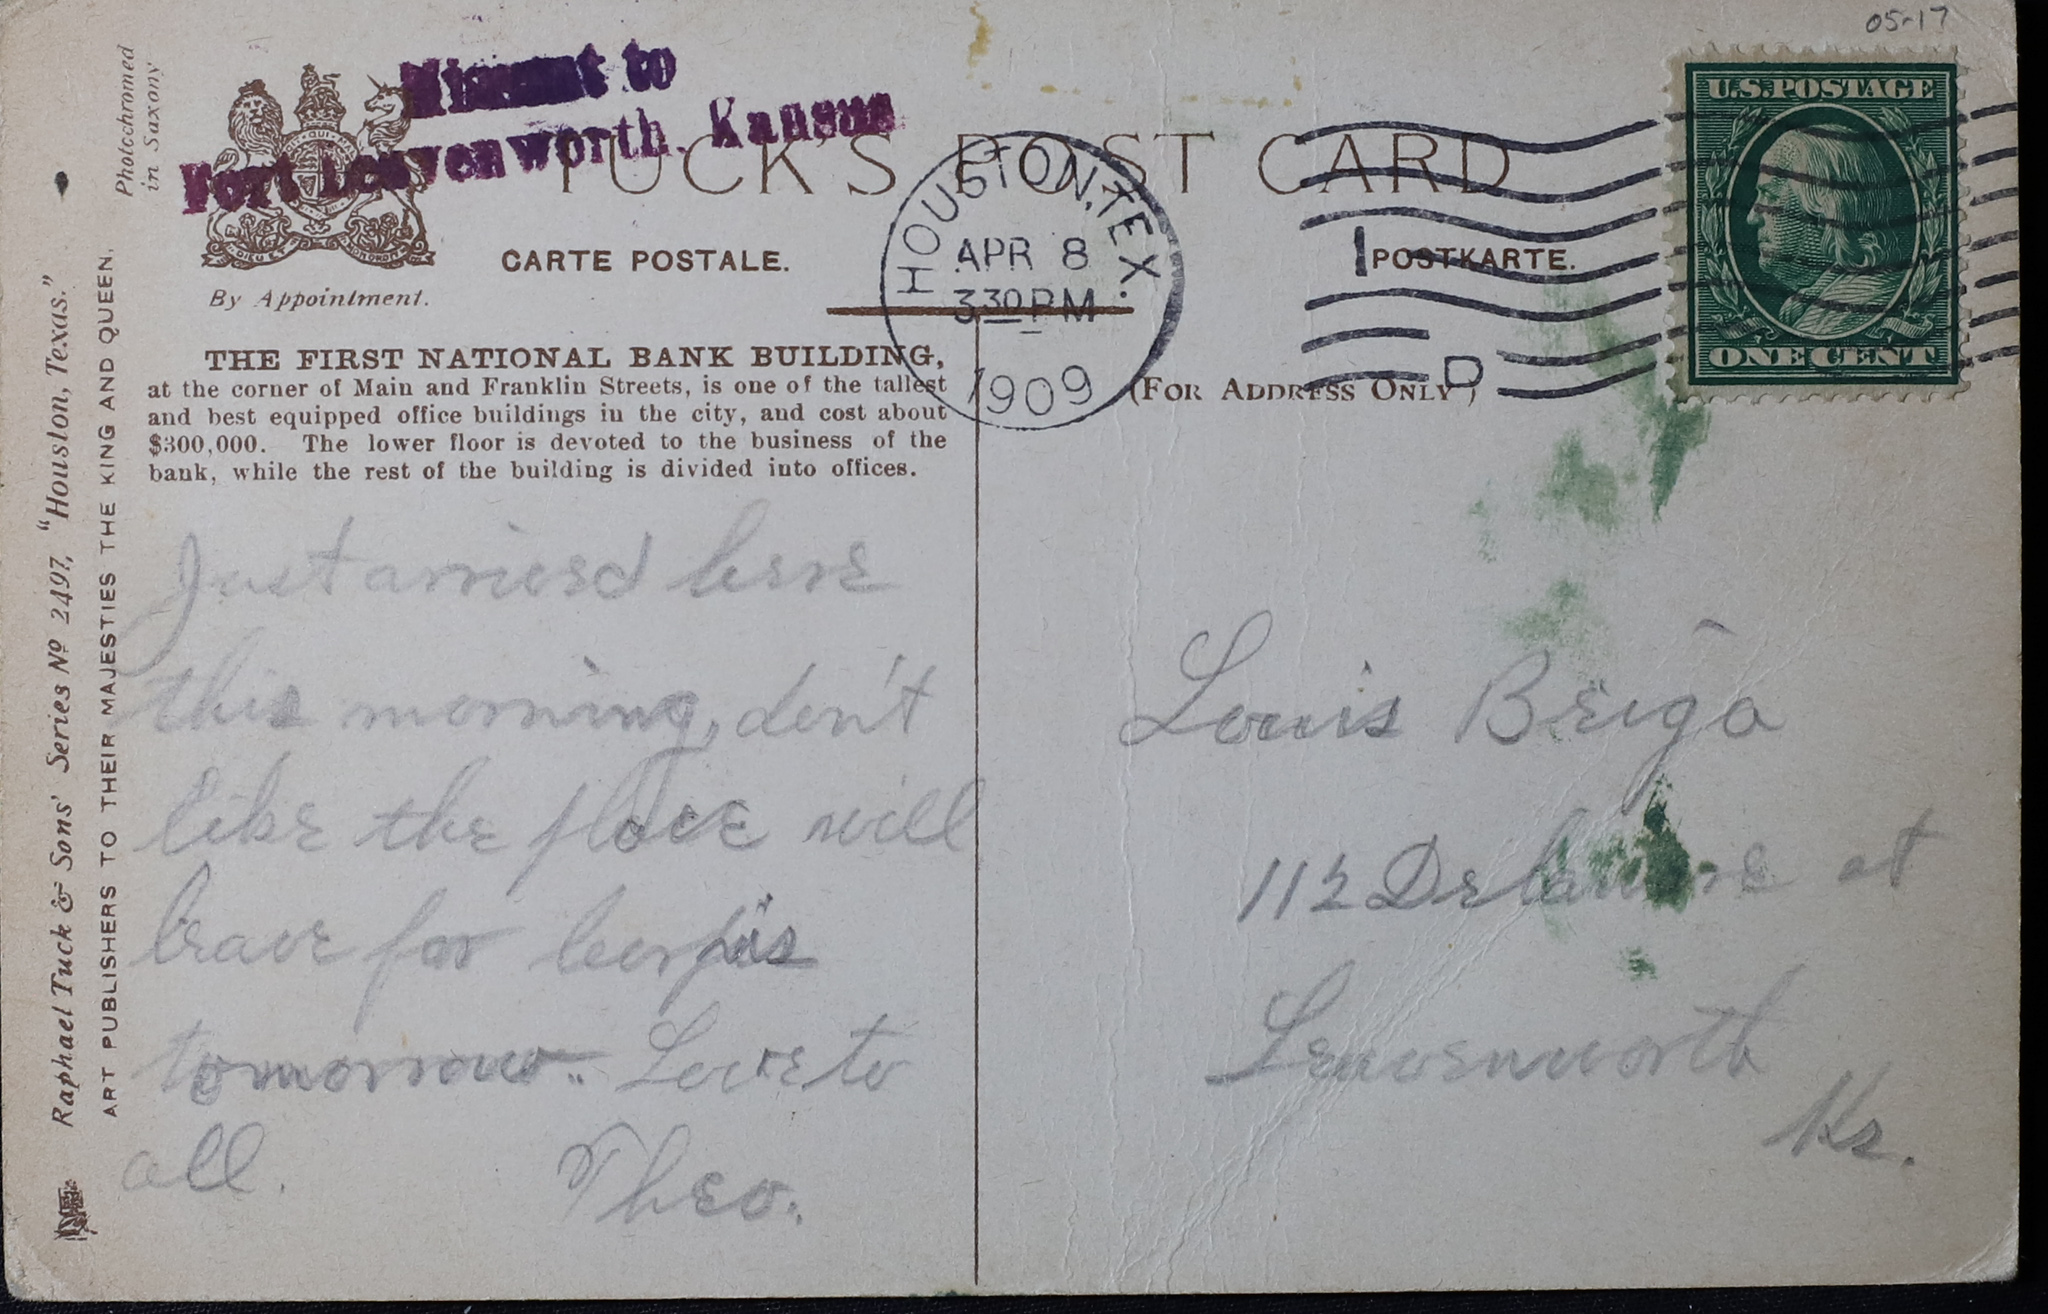 05-17
Photochromed
in Saxony
Missent to
Fort Leavenworth, Kansas
TUCK'S POST CARD
U.S. POSTAGE
ONE CENT
HOUSTON, TEX.
APR 8
3 30 PM
1909
1
D
CARTE POSTALE.
POSTKARTE.
By Appointment.
(FOR ADDRESS ONLY)
THE FIRST NATIONAL BANK BUILDING,
at the corner of Main and Franklin Streets, is one of the tallest
and best equipped office buildings in the city, and cost about
$300,000. The lower floor is devoted to the business of the
bank, while the rest of the building is divided into offices.
Raphael Tuck & Sons' Series No 2497, "Houston, Texas."
ART PUBLISHERS TO THEIR MAJESTIES THE KING AND QUEEN.
Just arrived here
this morning, don't
like the place will
leave for corpus
tomorrow. Love to
all. Theo.
Louis Beiga
112 Delaware st
Leavenworth
Ks.